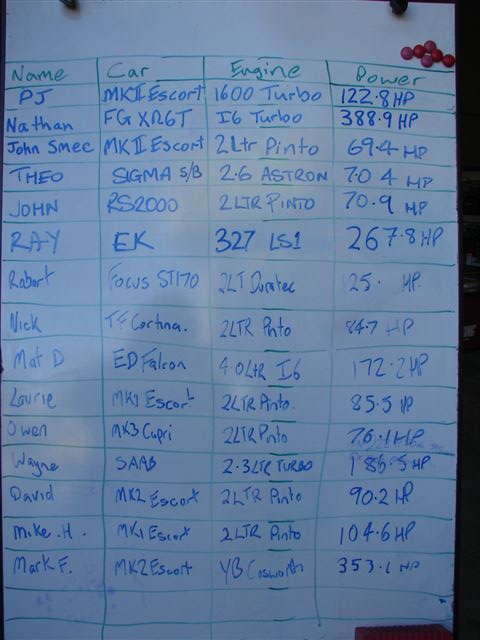 Name Car Engine Power
PJ MKII Escort 1600 Turbo 122.8 HP
Nathan FG XR6T I6 Turbo 388.9 HP
John Smec MKII Escort 2Ltr Pinto 69.4 HP
THEO SIGMA S/B 2.6 ASTRON 70.4 HP
JOHN RS2000 2LTR PINTO 70.9 HP
RAY EK 327 LS1 267.8 HP
Robert Focus ST170 2LT Duratec 125. HP
Nick TF Cortina. 2LTR Pinto 84.7 HP
Mat D ED Falcon 4.0Ltr I6 172.2 HP
Laurie MK1 Escort 2LTR Pinto. 85.5 HP
Owen MK3 Capri 2LTR Pinto 76.1 HP
Wayne SAAB 2.3LTR TURBO 185.5 HP
David MK2 Escort 2LTR Pinto 90.2 HP
Mike.H. MK1 Escort 2LTR Pinto 104.6 HP
Mark F. MK2 Escort YB Cosworth 353.1 HP